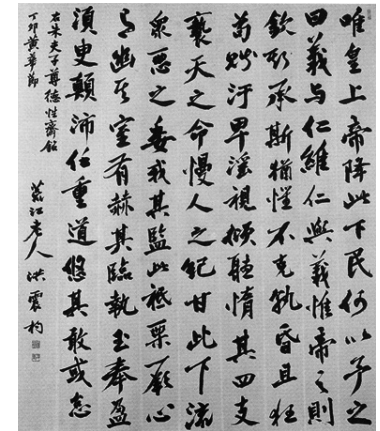 唯皇上帝降此下民何以予之
曰義与仁維仁與義惟帝之則
欽斯承斯猶懼不克孰昏且狂
苟賤汙卑淫視傾聽惰其四支
褻天之命慢人之紀甘此下流
衆惡之委我其監此祗栗厥心
有幽其室有赫其臨執玉奉盈
須臾顛沛任重道悠其敢或怠
右朱夫子尊德性齋銘
丁卯黃華節
江老人 洪震杓